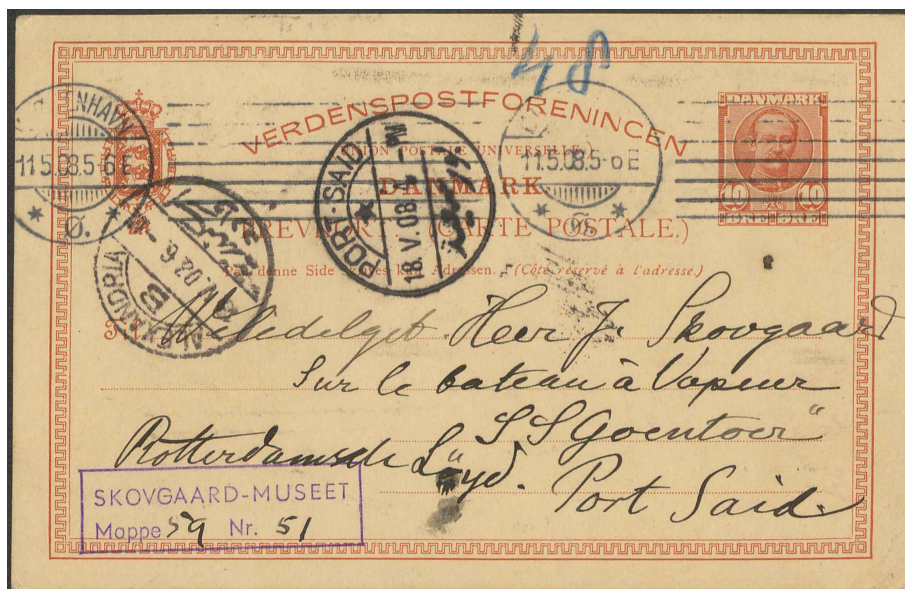 48
VERDENSPOSTFORENINGEN
(UNION POSTALE UNIVERSELLE.)
DANMARK
BREVKORT. (CARTE POSTALE.)
Paa denne Side skrives kun Adressen. (Côté réservé à l'adresse.)
DANMARK
10 10
ØRE ØRE
KJØBENHAVN
11.5.08.5-6 E
Ø.
11.5.08.5-6 E
Ø.
PORT-SAID
18.V.08
بورسعيد
ALEXANDRIA
B
Heer J. Skovgaard
Sur le bateau à Vapeur
"SS Goentoer"
Rotterdamsche Lloyd.
Port Said.
SKOVGAARD-MUSEET
Mappe 59 Nr. 51